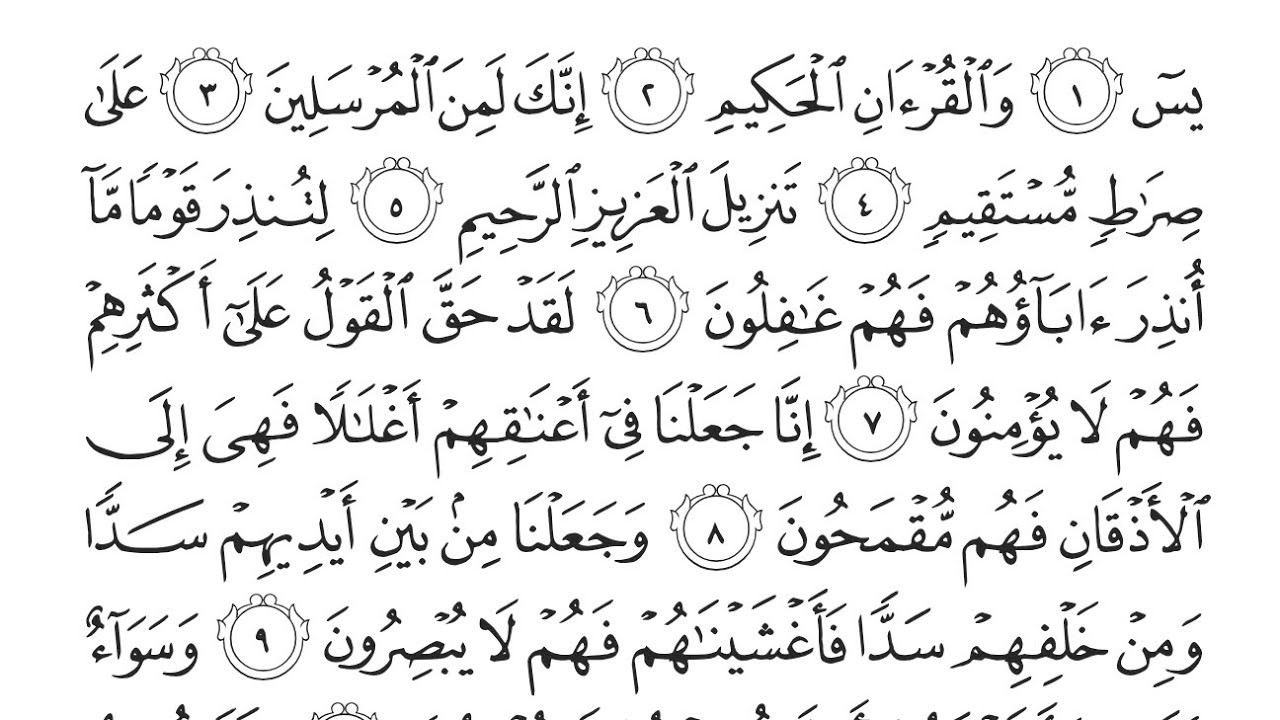 يسٓ ١ وَٱلْقُرْءَانِ ٱلْحَكِيمِ ٢ إِنَّكَ لَمِنَ ٱلْمُرْسَلِينَ ٣ عَلَىٰ
صِرَٰطٍ مُّسْتَقِيمٍ ٤ تَنزِيلَ ٱلْعَزِيزِ ٱلرَّحِيمِ ٥ لِتُنذِرَ قَوْمًا مَّآ
أُنذِرَ ءَابَآؤُهُمْ فَهُمْ غَٰفِلُونَ ٦ لَقَدْ حَقَّ ٱلْقَوْلُ عَلَىٰٓ أَكْثَرِهِمْ
فَهُمْ لَا يُؤْمِنُونَ ٧ إِنَّا جَعَلْنَا فِىٓ أَعْنَٰقِهِمْ أَغْلَٰلًا فَهِىَ إِلَى
ٱلْأَذْقَانِ فَهُم مُّقْمَحُونَ ٨ وَجَعَلْنَا مِنۢ بَيْنِ أَيْدِيهِمْ سَدًّا
وَمِنْ خَلْفِهِمْ سَدًّا فَأَغْشَيْنَٰهُمْ فَهُمْ لَا يُبْصِرُونَ ٩ وَسَوَآءٌ